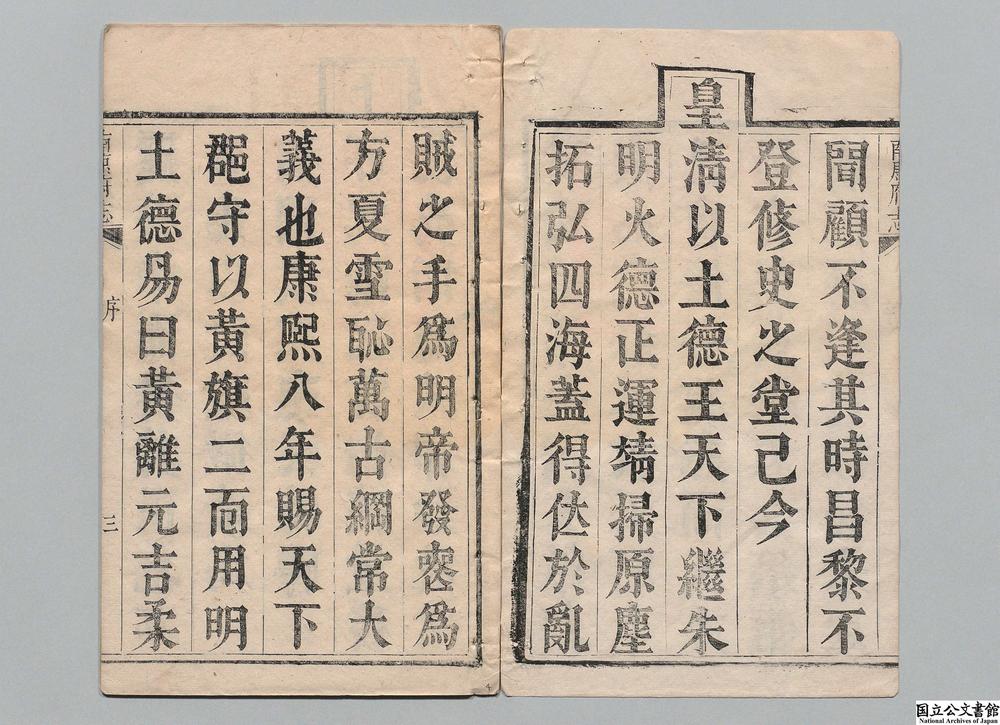 南康府志
間顧不逢其時昌黎不
登修史之堂己今
皇清以土德王天下繼朱
明火德正運埥掃原塵
拓弘四海蓋得伏於亂
賊之手爲明帝發喪爲
方夏雪恥萬古綱常大
義也康熙八年賜天下
郡守以黃旗二面用明
土德易曰黃離元吉柔
南康府志 序 三
国立公文書館
National Archives of Japan